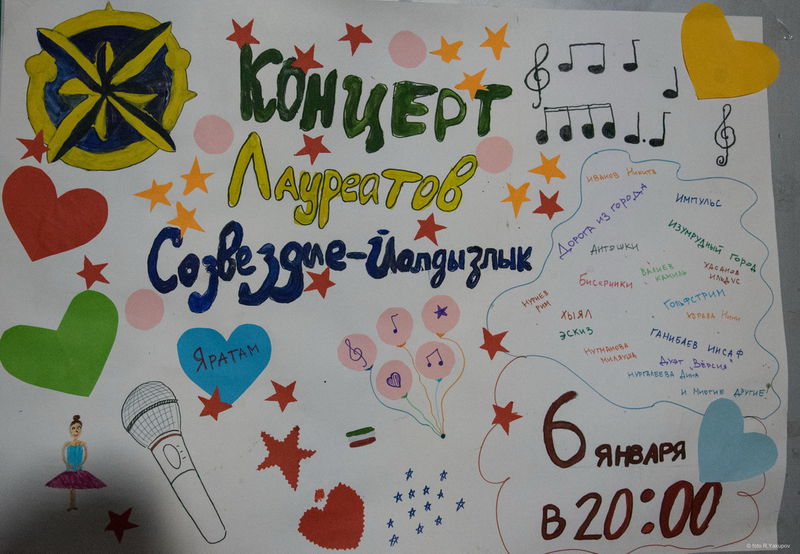 Концерт
Лауреатов
Созвездие-Йолдызлык
Яратам
Иванов Никита
Импульс
Дорога из города
Изумрудный город
Антошки
Валиев
Камиль
Хасанов
Ильдус
Бисеринки
Гольфстрим
Нуриев
Рим
Хыял
Эскиз
Ганибаев Инсаф
Дуэт "Версия"
Нургалеева Дина
и многие другие!
6 января
в 20:00
© foto R.Yakupov